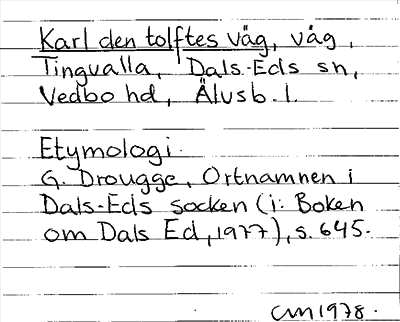 Karl den tolftes väg, våg,
Tingvalla, Dals-Eds sn,
Vedbo hd, Älvsb. l.
Etymologi.
G. Drougge, Ortnamnen i
Dals-Eds socken (i: Boken
om Dals Ed, 1977), s. 645.
CM 1978.